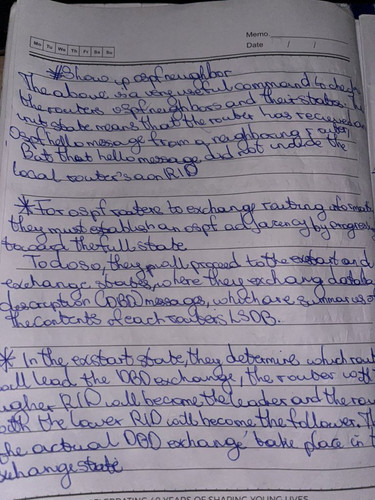 Memo.
Mo Tu We Th Fr Sa Su
Date / /
#Show ip ospf neighbor
The above is a very useful command to check
the routers ospf neighbors and their states. The
init state means that the router has received an
Ospf hello message from a neighbouring router
But that hello message did not include the
local router's own RID
* For ospf routers to exchange routing information
they must establish an ospf adjacency by progressing
toward the full state
To do so, they will proceed to the exstart and
exchange states, where they exchange database
description (DBD) message, which are summaries of
the contents of each router's LSDB.
* In the exstart state, they determine which router
will lead the DBD exchange, the router with
higher RID will become the leader and the router
with the lower RID will become the follower. The
the actual DBD exchange take place in the
exchange state
CELEBRATING 40 YEARS OF SHAPING YOUNG LIVES